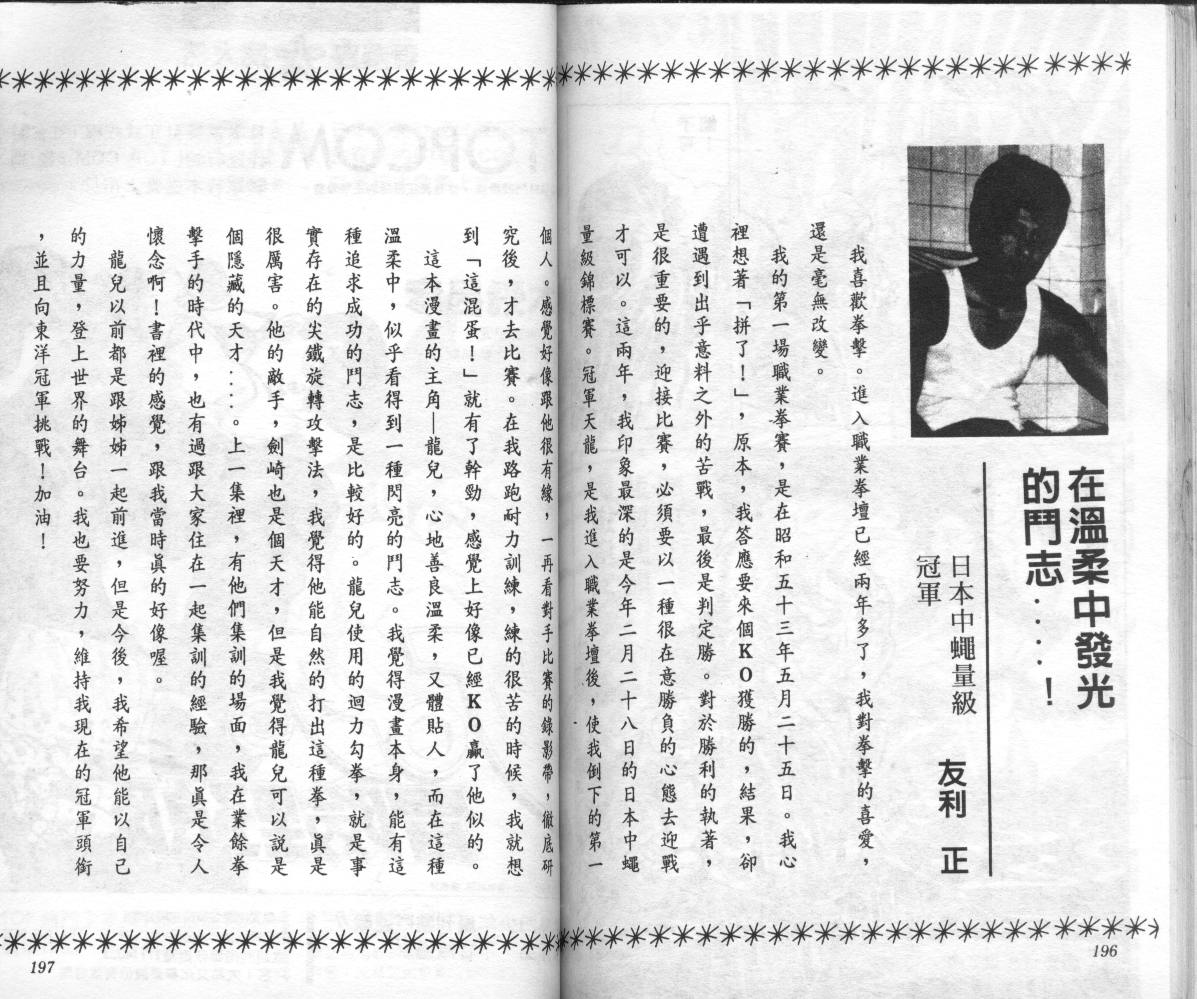 在溫柔中發光
的鬥志‥‥！
日本中蠅量級
冠軍
友利 正
我喜歡拳擊。進入職業拳壇已經兩年多了，我對拳擊的喜愛，
還是毫無改變。
我的第一場職業拳賽，是在昭和五十三年五月二十五日。我心
裡想著「拼了！」，原本，我答應要來個KO獲勝的，結果，卻
遭遇到出乎意料之外的苦戰，最後是判定勝。對於勝利的執著，
是很重要的，迎接比賽，必須要以一種很在意勝負的心態去迎戰
才可以。這兩年，我印象最深的是今年二月二十八日的日本中蠅
量級錦標賽。冠軍天龍，是我進入職業拳壇後，使我倒下的第一
個人。感覺好像跟他很有緣，一再看對手比賽的錄影帶，徹底研
究後，才去比賽。在我路跑耐力訓練，練的很苦的時候，我就想
到「這混蛋！」就有了幹勁，感覺上好像已經KO贏了他似的。
這本漫畫的主角—龍兒，心地善良溫柔，又體貼人，而在這種
溫柔中，似乎看得到一種閃亮的鬥志。我覺得漫畫本身，能有這
種追求成功的鬥志，是比較好的。龍兒使用的迴力勾拳，就是事
實存在的尖鐵旋轉攻擊法，我覺得他能自然的打出這種拳，真是
很厲害。他的敵手，劍崎也是個天才，但是我覺得龍兒可以說是
個隱藏的天才‥‥。上一集裡，有他們集訓的場面，我在業餘拳
擊手的時代中，也有過跟大家住在一起集訓的經驗，那真是令人
懷念啊！書裡的感覺，跟我當時真的好像喔。
龍兒以前都是跟姊姊一起前進，但是今後，我希望他能以自己
的力量，登上世界的舞台。我也要努力，維持我現在的冠軍頭銜
，並且向東洋冠軍挑戰！加油！
196
197